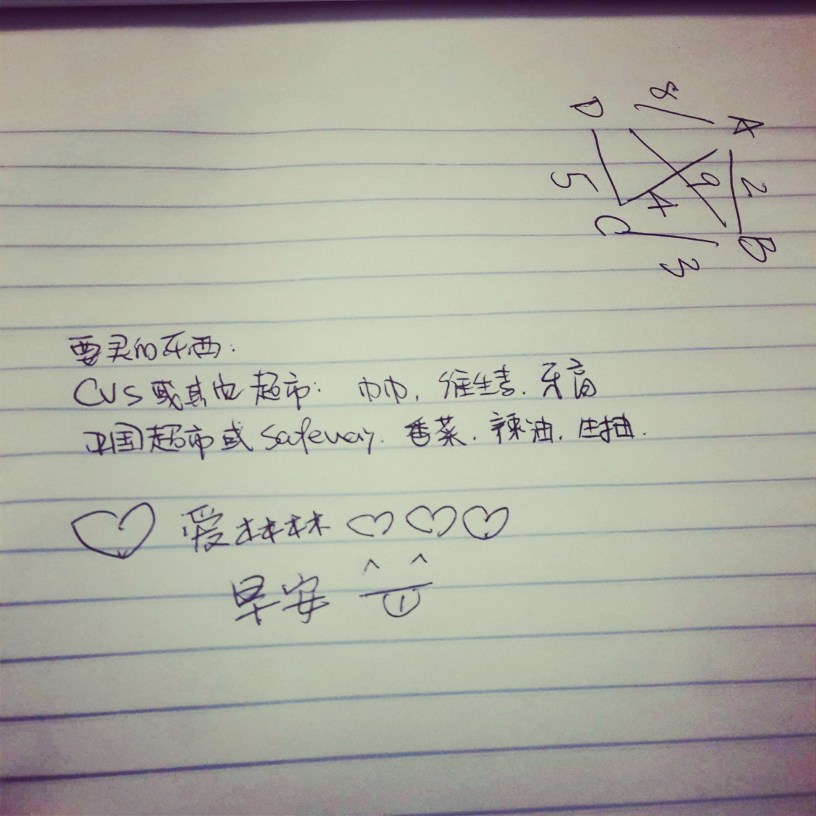 D 8 A
5 4 9 2
C 3 B
要买的东西:
CVS或其他超市: 巾巾, 维生素, 牙膏
中国超市或Safeway. 香菜. 辣油. 生抽.
爱林林
早安 ^ ^